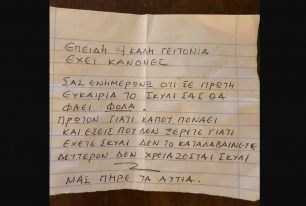 ΕΠΕΙΔΗ Η ΚΑΛΗ ΓΕΙΤΟΝΙΑ
ΕΧΕΙ ΚΑΝΟΝΕΣ
ΣΑΣ ΕΝΗΜΕΡΩΝΩ ΟΤΙ ΣΕ ΠΡΩΤΗ
ΕΥΚΑΙΡΙΑ ΤΟ ΣΚΥΛΙ ΣΑΣ ΘΑ
ΦΑΕΙ ΦΟΛΑ.
ΠΡΩΤΟΝ ΓΙΑΤΙ ΚΑΠΟΥ ΠΟΝΑΕΙ
ΚΑΙ ΕΣΕΙΣ ΠΟΥ ΔΕΝ ΞΕΡΕΤΕ ΓΙΑΤΙ
ΕΧΕΤΕ ΣΚΥΛΙ ΔΕΝ ΤΟ ΚΑΤΑΛΑΒΑΙΝΕΤΕ
ΔΕΥΤΕΡΟΝ ΔΕΝ ΧΡΕΙΑΖΕΣΤΑΙ ΣΚΥΛΙ
ΜΑΣ ΠΗΡΕ ΤΑ ΑΥΤΙΑ.